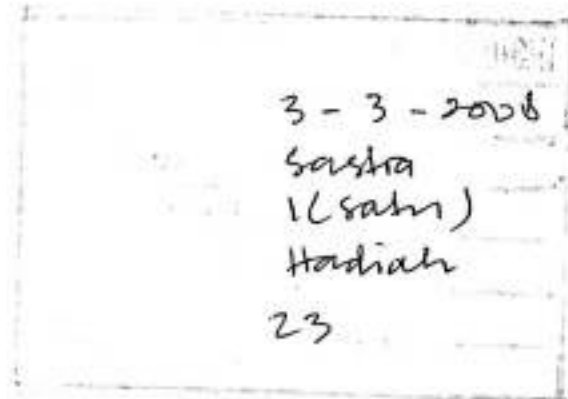 3 - 3 - 2008
Sastra
1 (satu)
Hadiah
23